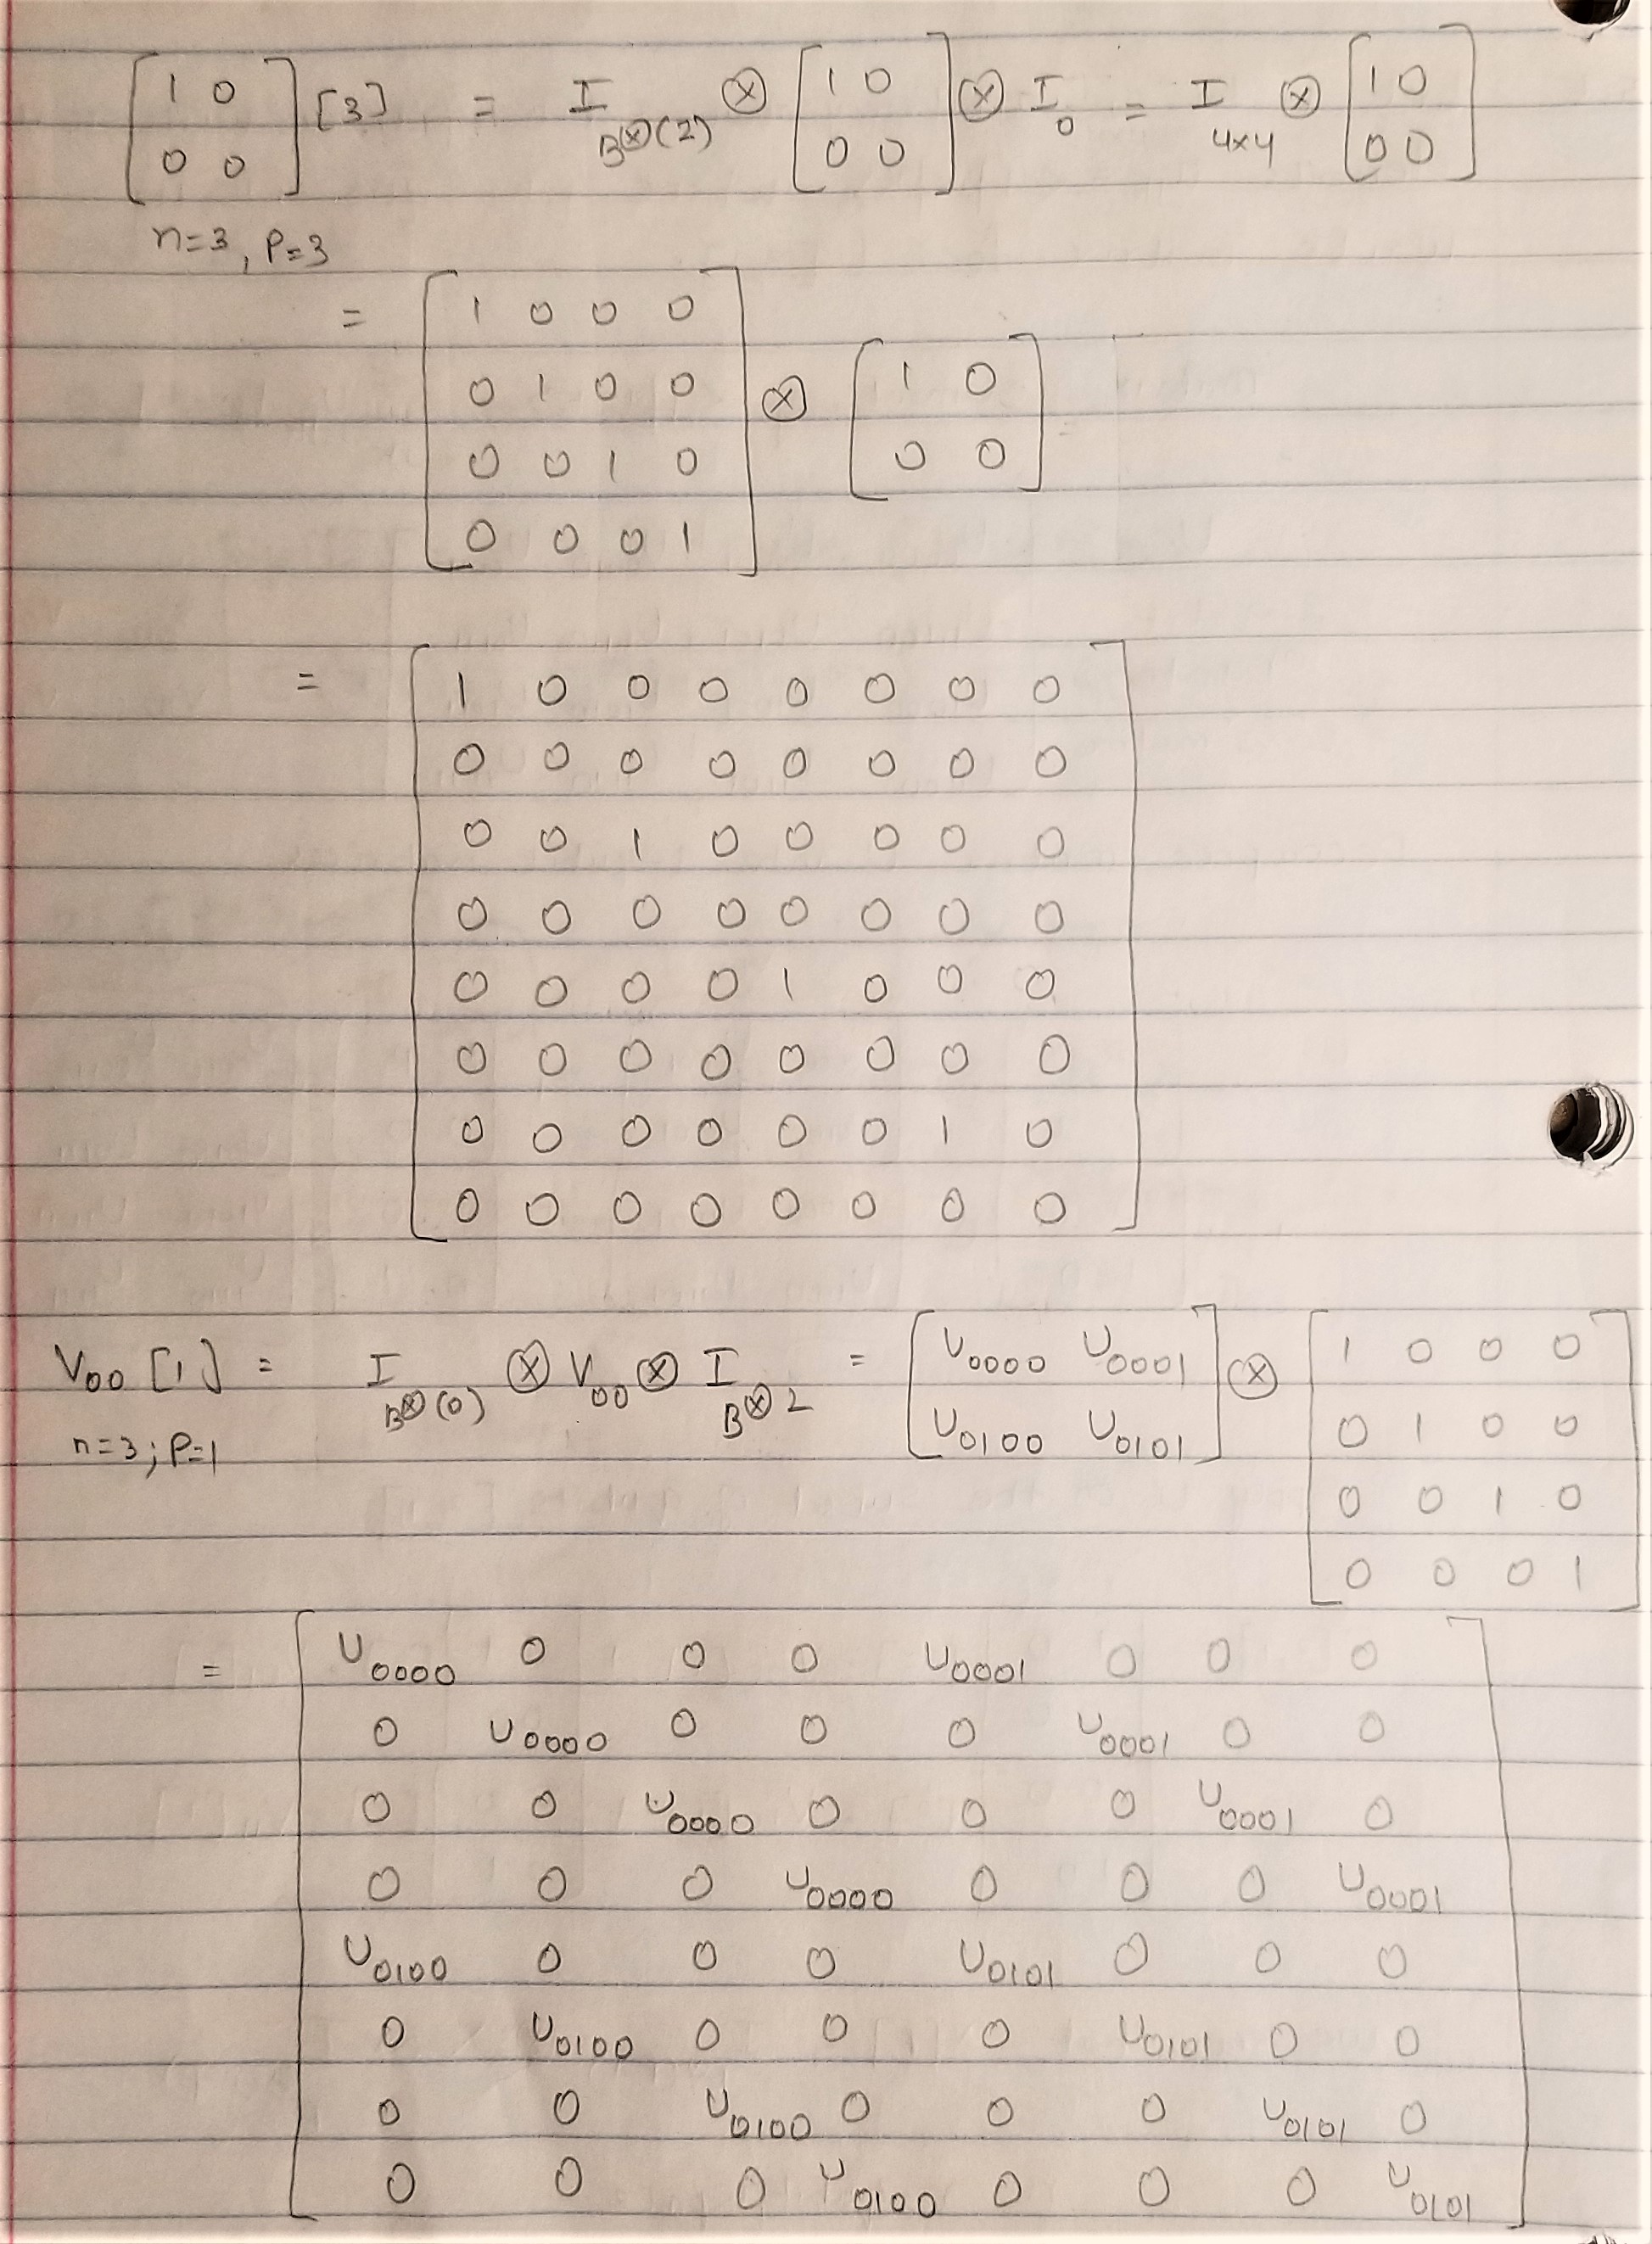 [1 0] [3] = I_{B^⊗(2)} ⊗ [1 0] ⊗ I_0 = I_{4×4} ⊗ [1 0]
[0 0] [0 0] [0 0]
n=3, P=3
= [1 0 0 0
0 1 0 0 ⊗ [1 0
0 0 1 0 0 0]
0 0 0 1]
= [1 0 0 0 0 0 0 0
0 0 0 0 0 0 0 0
0 0 1 0 0 0 0 0
0 0 0 0 0 0 0 0
0 0 0 0 1 0 0 0
0 0 0 0 0 0 0 0
0 0 0 0 0 0 1 0
0 0 0 0 0 0 0 0]
V_{00} [1] = I_{B^⊗(0)} ⊗ V_{00} ⊗ I_{B^⊗2} = [U_{0000} U_{0001} ⊗ [1 0 0 0
n=3; P=1 U_{0100} U_{0101}] 0 1 0 0
0 0 1 0
0 0 0 1]
= [U_{0000} 0 0 0 U_{0001} 0 0 0
0 U_{0000} 0 0 0 U_{0001} 0 0
0 0 U_{0000} 0 0 0 U_{0001} 0
0 0 0 U_{0000} 0 0 0 U_{0001}
U_{0100} 0 0 0 U_{0101} 0 0 0
0 U_{0100} 0 0 0 U_{0101} 0 0
0 0 U_{0100} 0 0 0 U_{0101} 0
0 0 0 U_{0100} 0 0 0 U_{0101}]